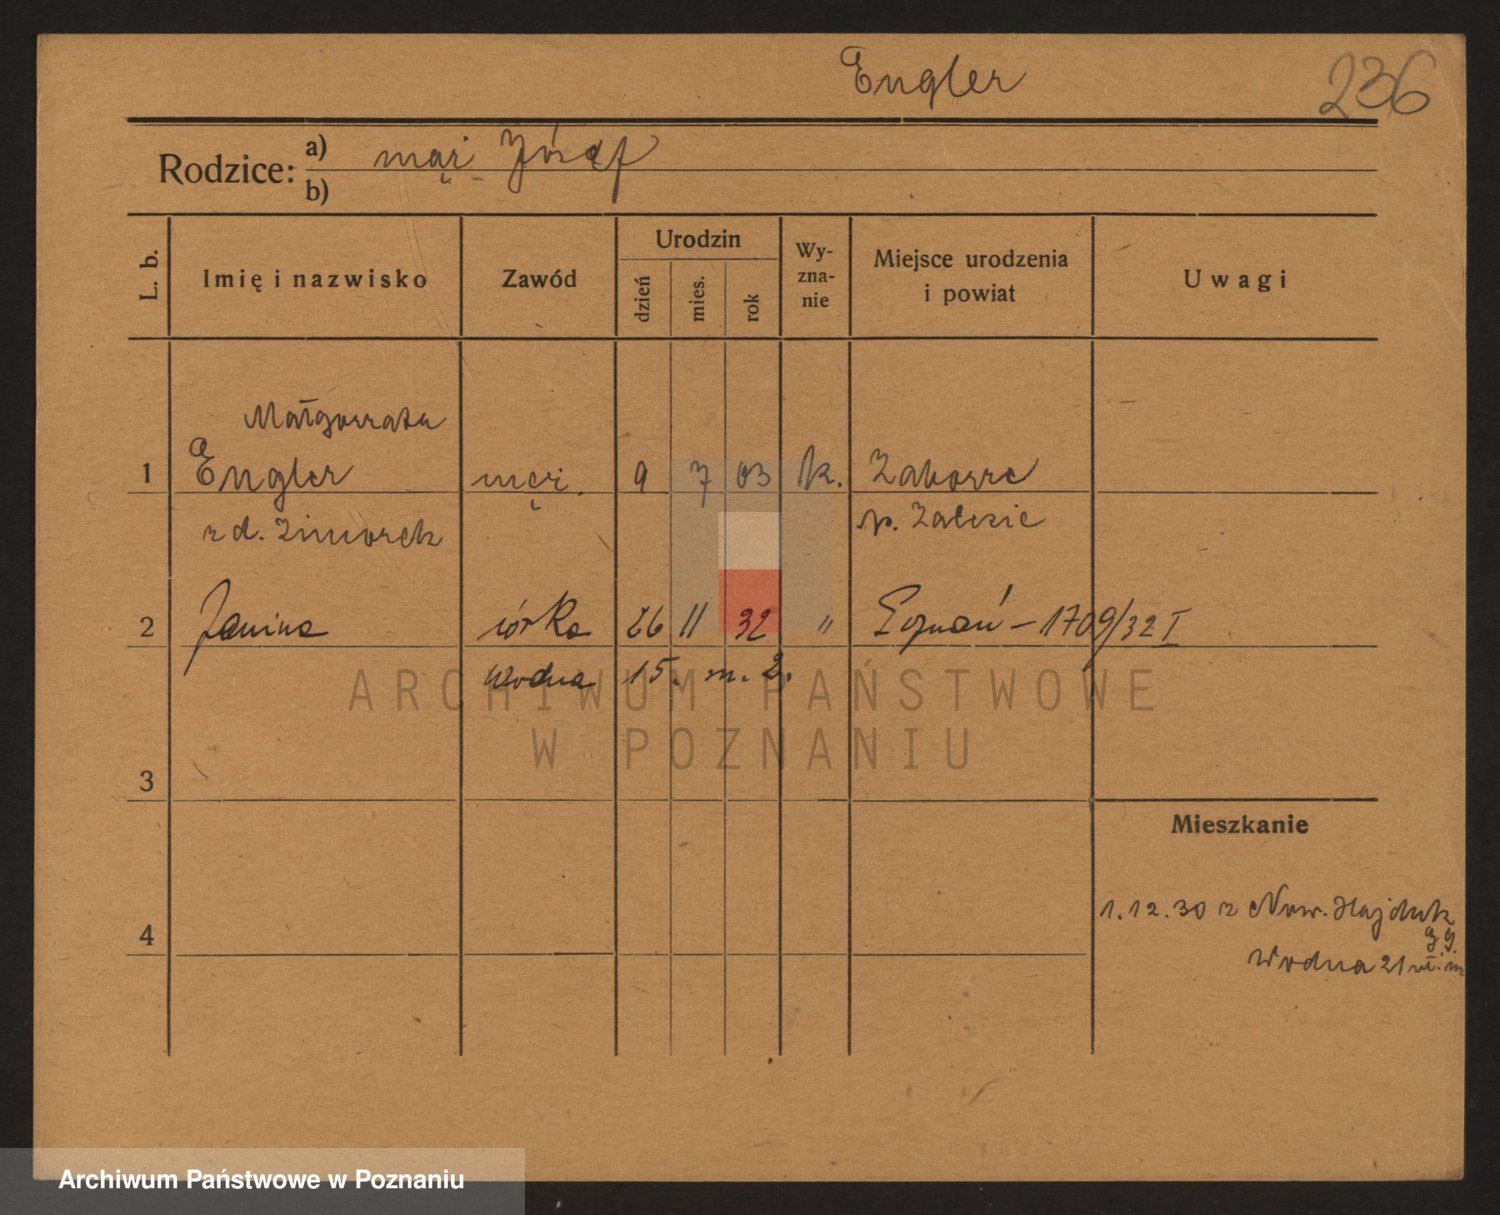 Engler
236
Rodzice: a) męż. Józef
b)
L. b.
Imię i nazwisko
Zawód
Urodzin
dzień
mies.
rok
Wy-
zna-
nie
Miejsce urodzenia
i powiat
Uwagi
Małgorzata
1 Engler męż. 9 7 03 k. Zaborze
z d. Zimorek p. Zalesie
2 Janina córka 26 11 32 " Poznań – 1709/32 I
Wodna 15. m. 2.
ARCHIWUM PAŃSTWOWE
W POZNANIU
3
Mieszkanie
1.12.30 z Now. Hajduk
4
Wodna 21
Archiwum Państwowe w Poznaniu